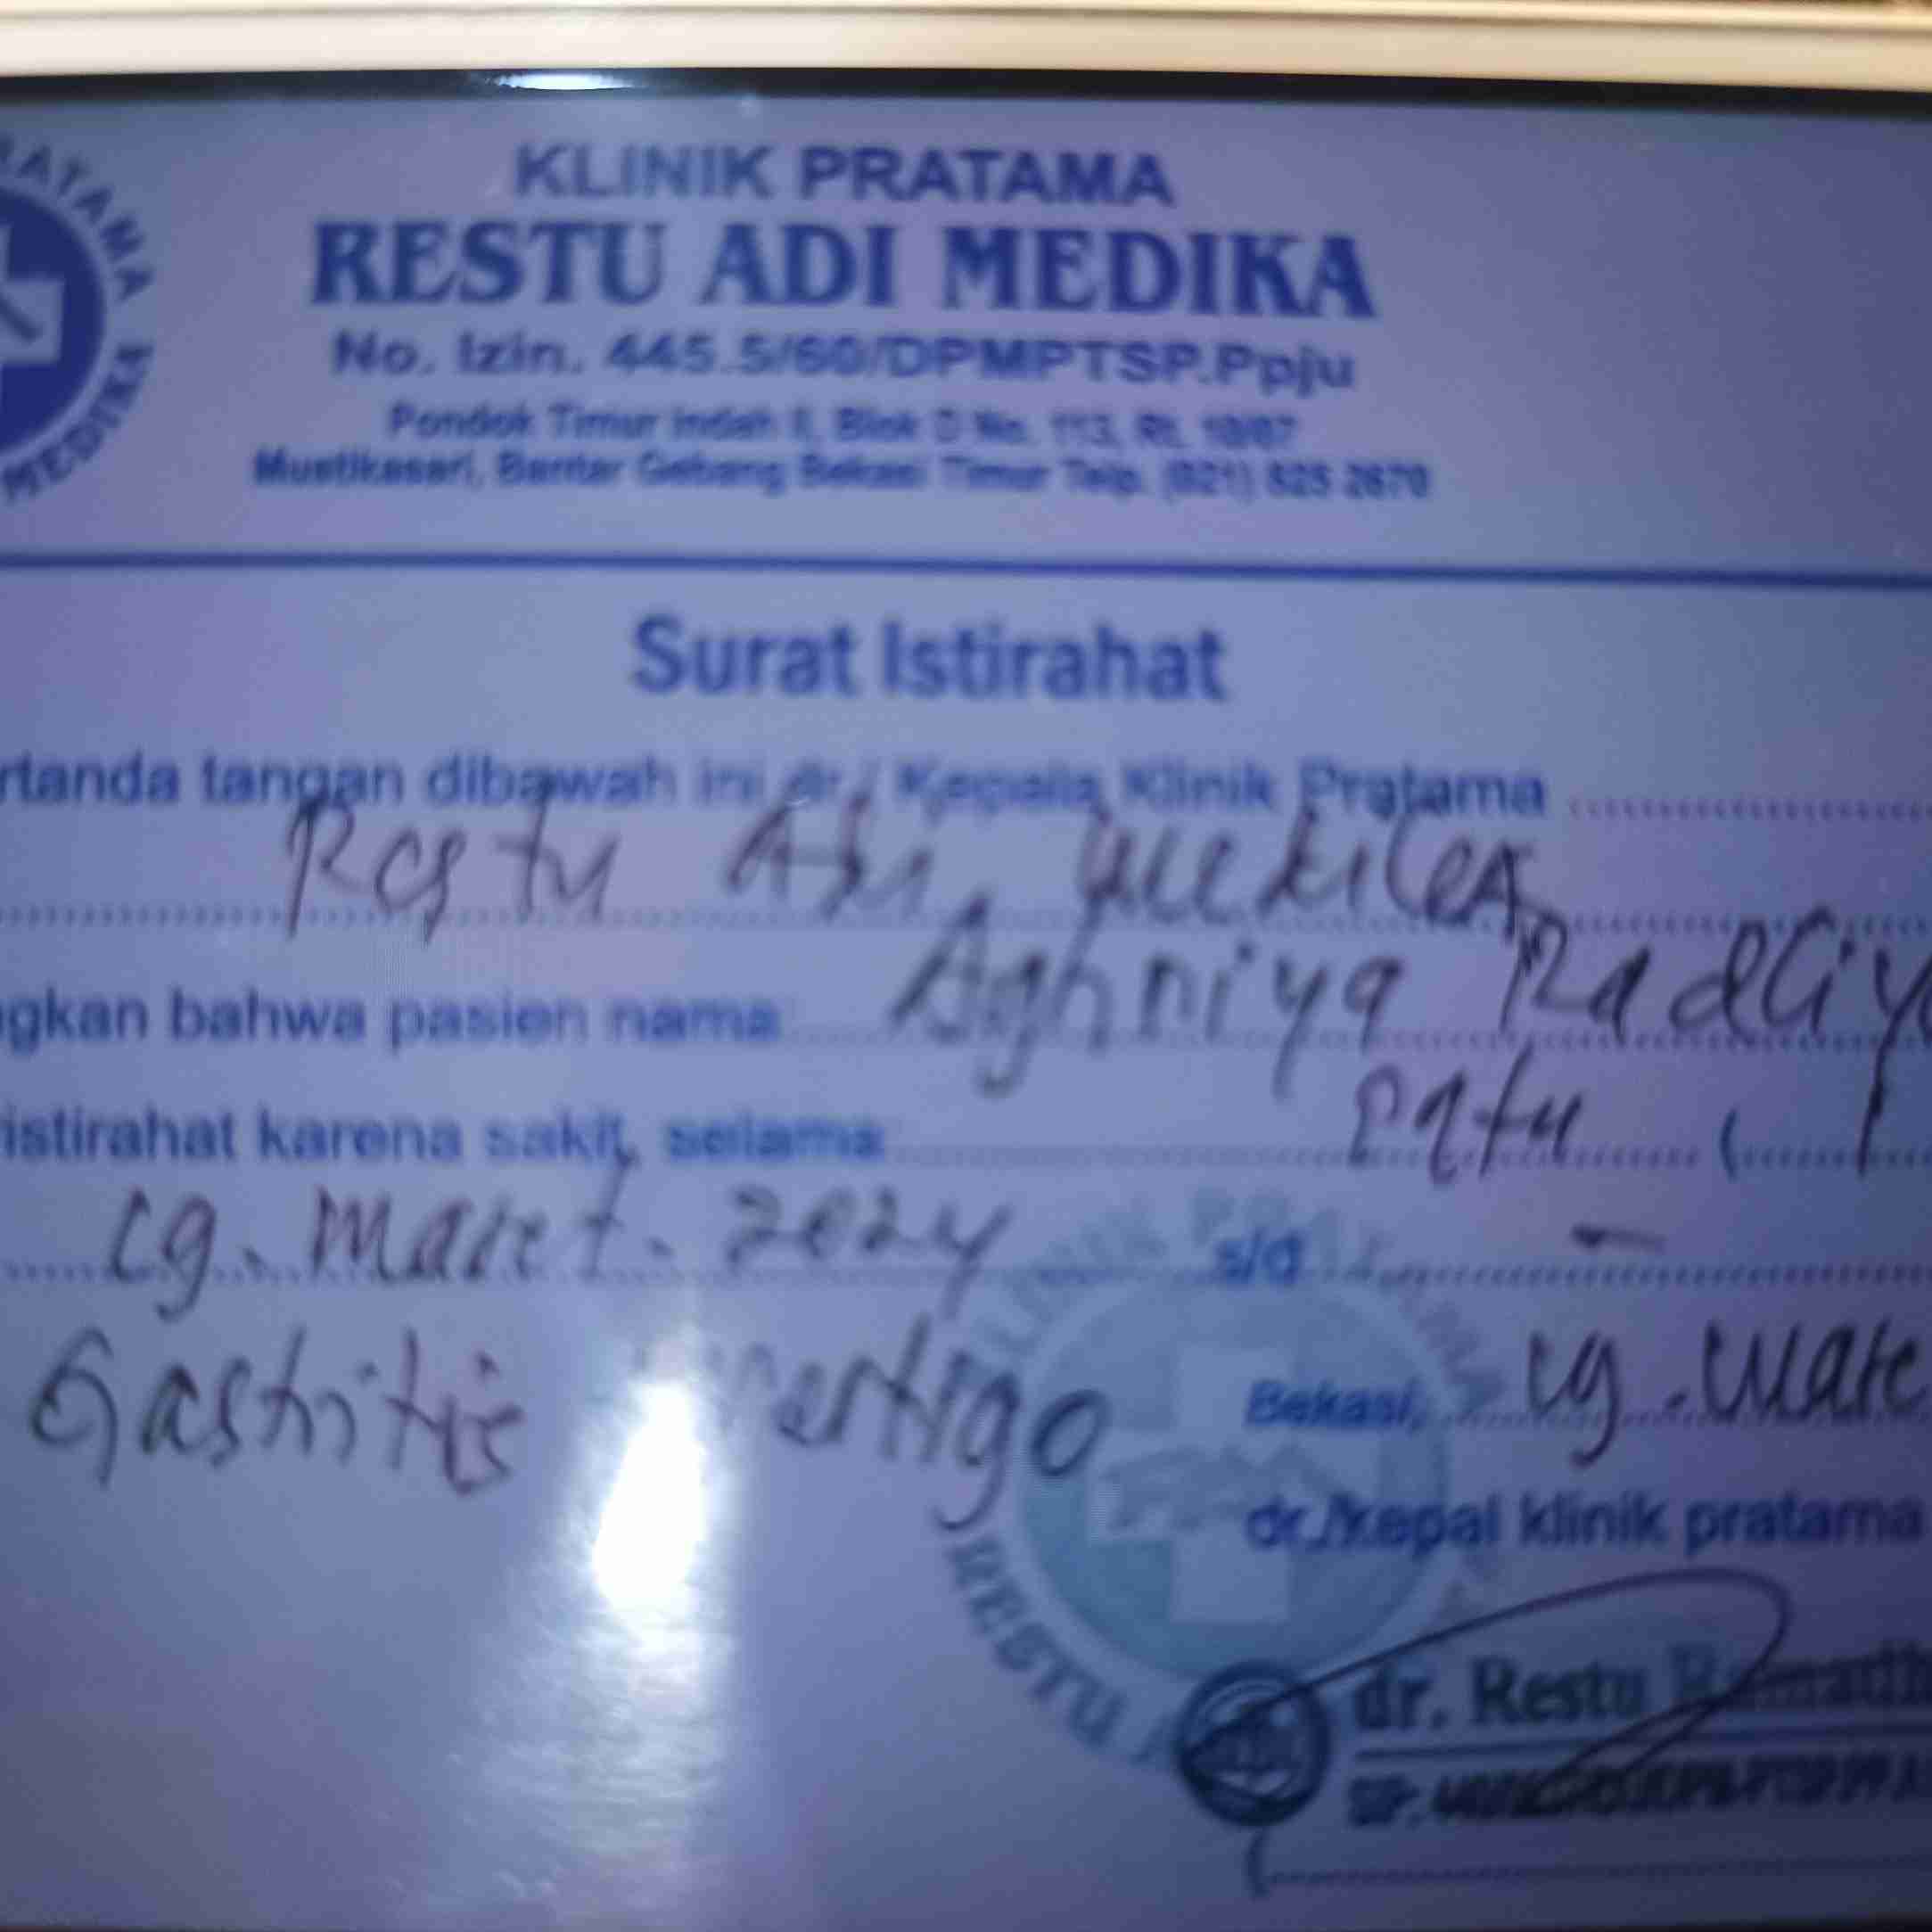 KLINIK PRATAMA
RESTU ADI MEDIKA
No. Izin. 445.5/60/DPMPTSP.Ppju
Pondok Timur Indah II, Blok D No. 113, Rt. 10/07
Mustikasari, Bantar Gebang Bekasi Timur Telp. (021) 825 2670
RATAMA
MEDIKA
Surat Istirahat
rtanda tangan dibawah ini dr./ Kepala Klinik Pratama
Restu Adi Medika
gkan bahwa pasien nama Aghniya Radliy
istirahat karena sakit, selama satu (1
19. Maret. 2024 s/d –
Gastritis vertigo
Bekasi, 19. Mare
dr./kepal klinik pratama
KLINIK PRATAMA
RESTU A
dr. Restu